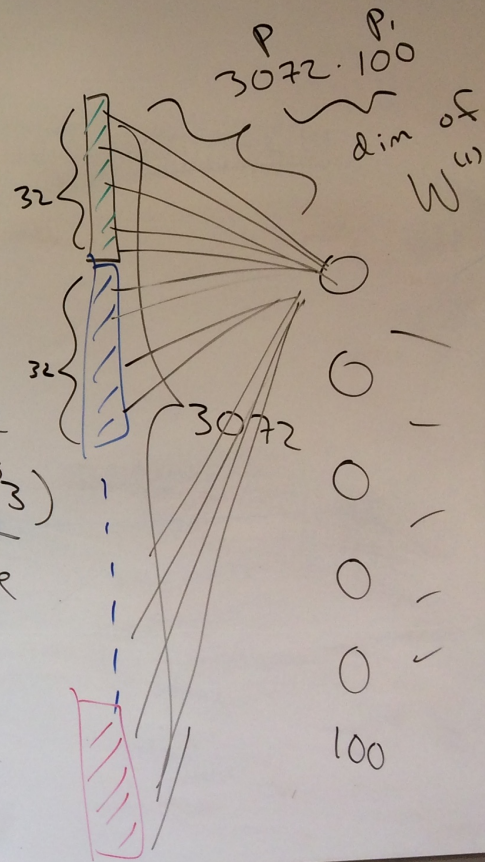 P P₁
3072 · 100
dim of
W⁽¹⁾
32
32
3072
3)
100